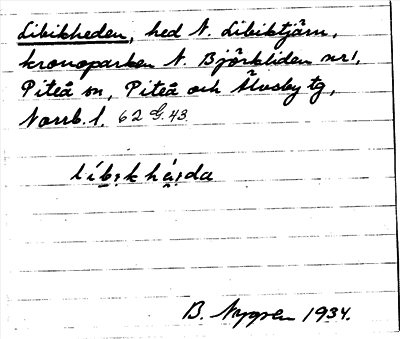 Libikheden, hed N. Libiktjärn,
kronoparken N. Björkliden nr 1,
Piteå sn, Piteå och Älvsby tg,
Norrb. l. 62 G. 43.
B. Nygren 1934.